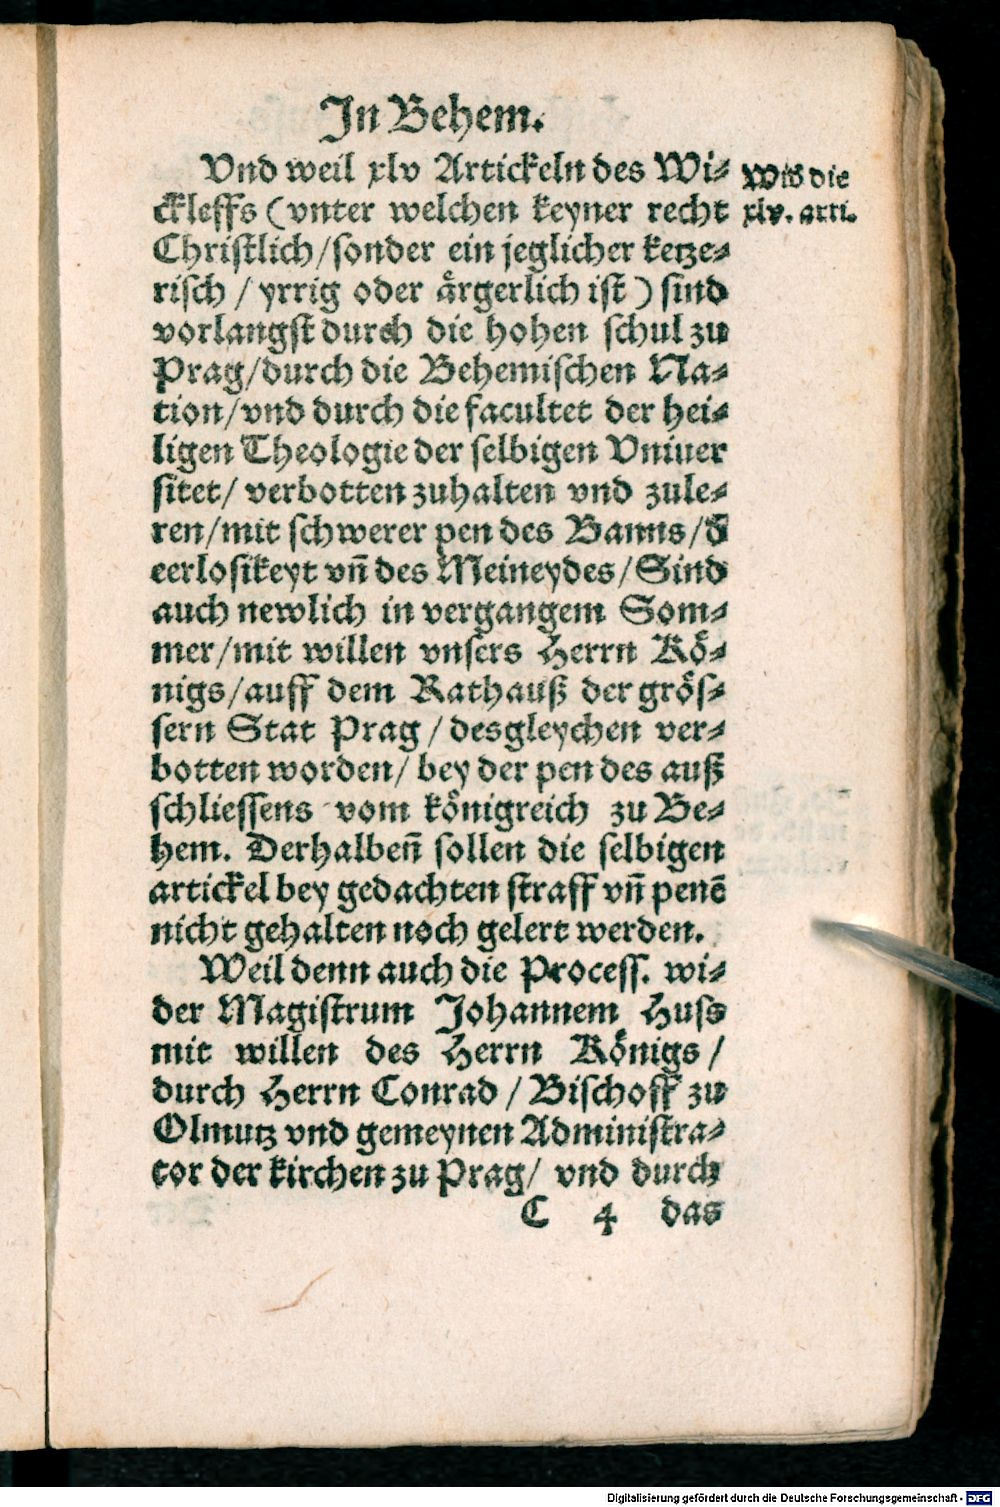 In Behem.
Vnd weil xlv Artickeln des Wi⸗
ckleffs (vnter welchen keyner recht
Christlich/sonder ein jeglicher ketze⸗
risch / yrrig oder ärgerlich ist) sind
vorlangst durch die hohen schul zu
Prag/durch die Behemischen Na⸗
tion/vnd durch die facultet der hei⸗
ligen Theologie der selbigen Vniuer
sitet/ verbotten zuhalten vnd zule⸗
ren/mit schwerer pen des Banns/d̄
eerlosikeyt vñ des Meineydes/Sind
auch newlich in vergangem Som⸗
mer/mit willen vnsers Herrn Kö⸗
nigs/auff dem Rathauß der grös⸗
sern Stat Prag / desgleychen ver⸗
botten worden/ bey der pen des auß
schliessens vom königreich zu Be⸗
hem. Derhalbeñ sollen die selbigen
artickel bey gedachten straff vñ penē
nicht gehalten noch gelert werden.
Weil denn auch die Process. wi⸗
der Magistrum Johannem Huss
mit willen des Herrn Königs /
durch Herrn Conrad / Bischoff zu
Olmutz vnd gemeynen Administra⸗
tor der kirchen zu Prag/ vnd durch
C 4 das
Wid die
xlv. arti.
Digitalisierung gefördert durch die Deutsche Forschungsgemeinschaft - DFG